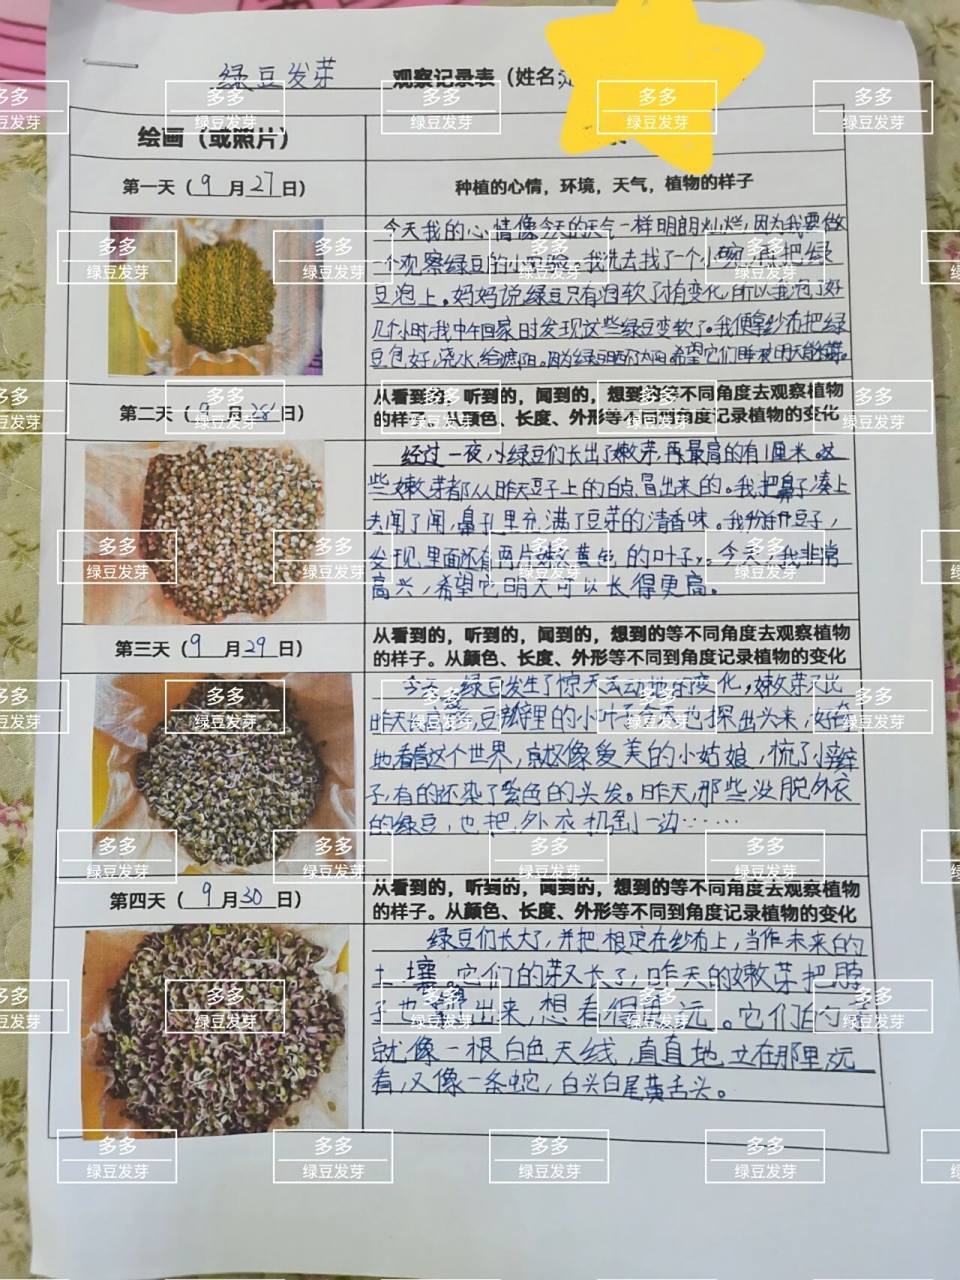 绿豆发芽 观察记录表（姓名:
绘画（或照片）
第一天（9月27日）
种植的心情，环境，天气，植物的样子
今天我的心情像今天的天气一样明朗灿烂，因为我要做
一个观察绿豆的小实验。我先去找了一个小碗，再把绿
豆泡上。妈妈说绿豆只有泡软了才有变化，所以我泡了好
几个小时，我中午回家时发现这些绿豆变软了。我便拿纱布把绿
豆包好，浇水，给遮阳。因为绿豆晒不了太阳，希望它们睡
第二天（9月28日）
从看到的，听到的，闻到的，想到的等不同角度去观察植物
的样子。从颜色、长度、外形等不同到角度记录植物的变化
经过一夜，小绿豆们长出了嫩芽，最高的有1厘米。这
些嫩芽都从昨天豆子上的白点冒出来的。我把鼻子凑上
去闻了闻，鼻孔里充满了豆芽的清香味。我掰开豆子，
发现里面还有两片嫩黄色的叶子。今天，我非常
高兴，希望它明天可以长得更高。
第三天（9月29日）
从看到的，听到的，闻到的，想到的等不同角度去观察植物
的样子。从颜色、长度、外形等不同到角度记录植物的变化
今天，绿豆发生了惊天动地的变化，嫩芽又比
昨天长高，豆瓣里的小叶子今天也探出头来，好奇
地看着这个世界，就像爱美的小姑娘，梳了小辫
子，有的还染了紫色的头发。昨天，那些没脱外衣
的绿豆，也把外衣扔到一边……
第四天（9月30日）
从看到的，听到的，闻到的，想到的等不同角度去观察植物
的样子。从颜色、长度、外形等不同到角度记录植物的变化
绿豆们长大了，并把根定在纱布上，当作未来的
土壤。它们的芽又长了，昨天的嫩芽把脖
子也出来，想看得更远。它们的
就像一根白色天线，直直地立在那里远
看，又像一条蛇，白头白尾黄舌头。
多多
绿豆发芽